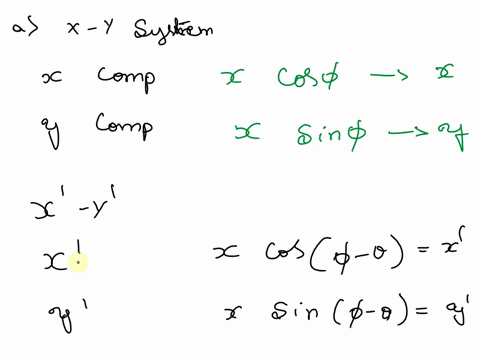 a) x - y System
x Comp x Cosϕ → x
y Comp x Sinϕ → y
x' - y'
x' x Cos(ϕ-θ) = x'
y' x Sin(ϕ-θ) = y'